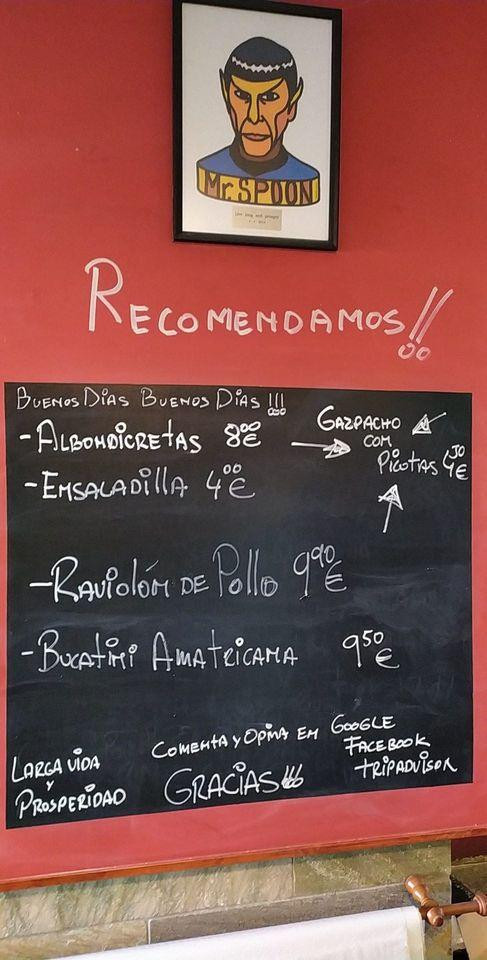 Mr. SPOON
Live long and prosper
RECOMENDAMOS!!
BUENOS DIAS BUENOS DIAS !!!
- ALBONDICRETAS 8⁰⁰€
GAZPACHO
CON
PICOTAS 4³⁰€
- ENSALADILLA 4⁰⁰€
- RAVIOLÓN DE POLLO 9⁹⁰€
- BUCATINI AMATRICANA 9⁵⁰€
LARGA VIDA
Y
PROSPERIDAD
COMENTA Y OPINA EN GOOGLE
FACEBOOK
TRIPADVISOR
GRACIAS!!!